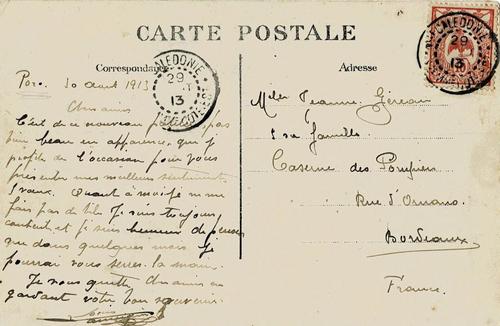 CARTE POSTALE
Correspondance
Poro. 30 Aout 1913
C'est de ce nouveau pas
bien beau en apparence, que je
profite de l'occasion pour vous
présenter mes meilleurs sentiments
Quant à moi je ne me
fais pas de bile. Je suis toujours
content, et je suis heureux de penser
que dans quelques mois je
pourrai vous serrer la main.
Je vous quitte en
gardant votre bon souvenir.
Nlle CALEDONIE
29
13
Adresse
Melle Jeanne Géreau
sa famille
Caserne des Pompiers
Rue d'Ornano
Bordeaux
France
Nlle CALEDONIE
29
13